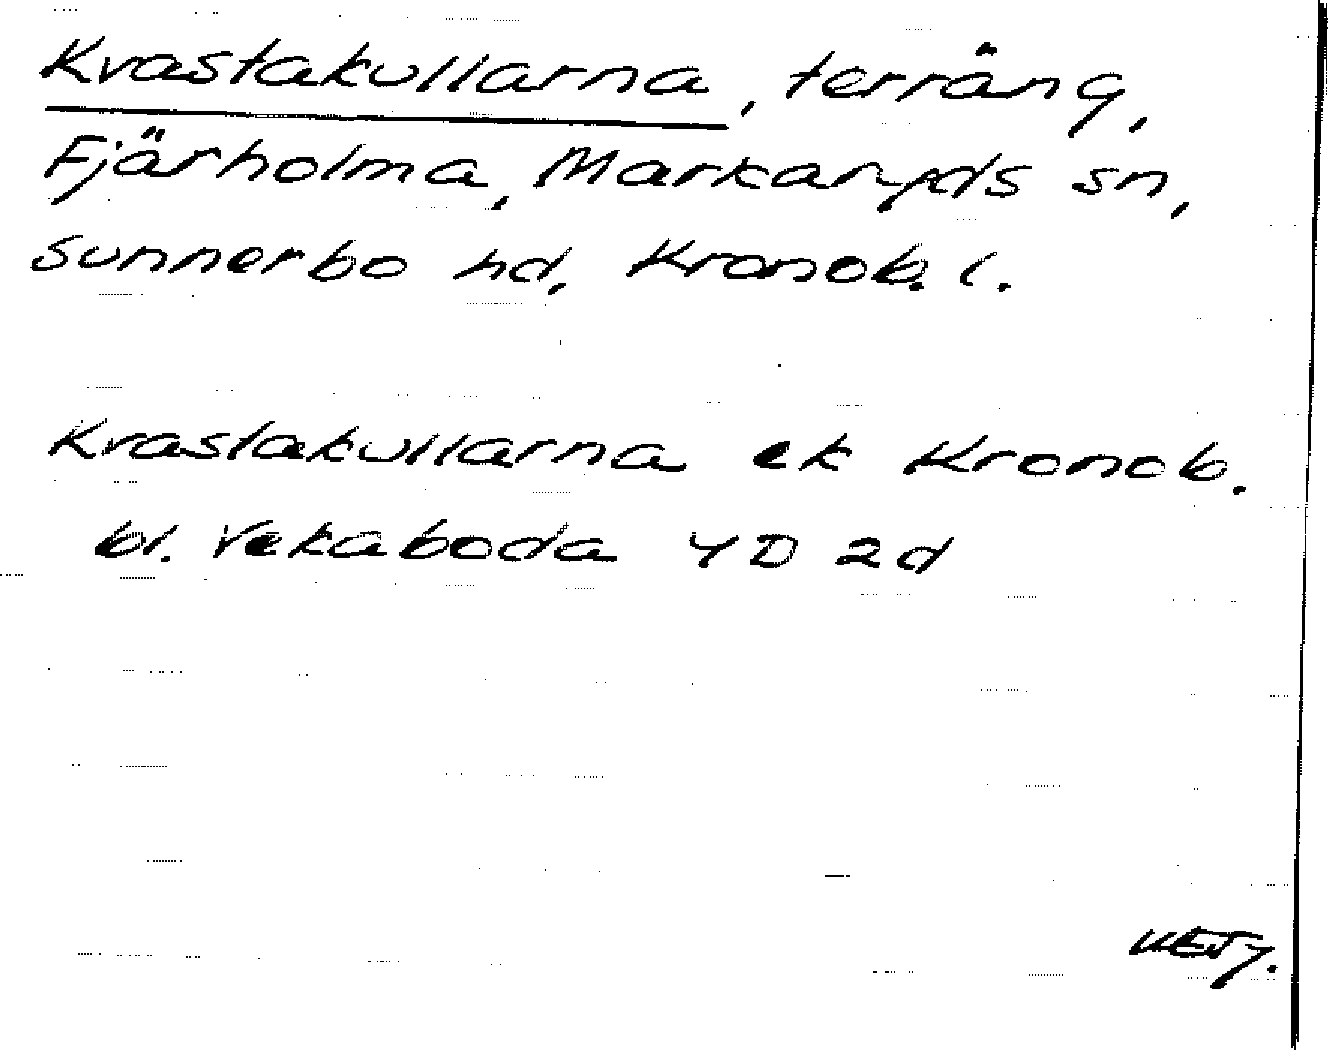 Kvastakullarna, terräng,
Fjärholma, Markaryds sn,
Sunnerbo hd, Kronob. l.
Kvastakullarna ek Kronob.
bl. Vekaboda 4D 2d